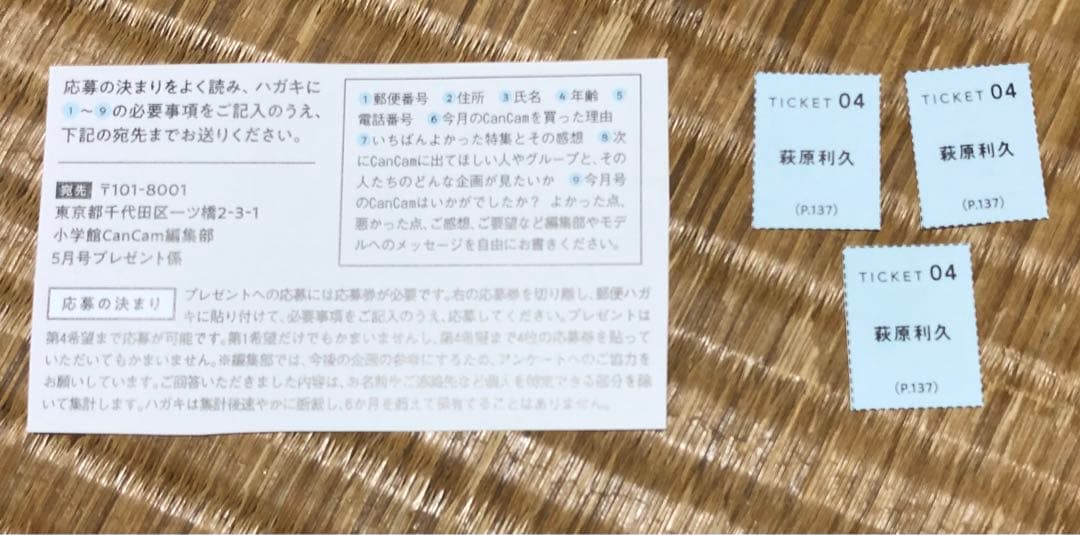 応募の決まりをよく読み、ハガキに
1～9の必要事項をご記入のうえ、
下記の宛先までお送りください。
宛先 〒101-8001
東京都千代田区一ツ橋2-3-1
小学館CanCam編集部
5月号プレゼント係
1郵便番号 2住所 3氏名 4年齢 5
電話番号 6今月のCanCamを買った理由
7いちばんよかった特集とその感想 8次
にCanCamに出てほしい人やグループと、その
人たちのどんな企画が見たいか 9今月号
のCanCamはいかがでしたか？ よかった点、
悪かった点、ご感想、ご要望など編集部やモデ
ルへのメッセージを自由にお書きください。
応募の決まり
プレゼントへの応募には応募券が必要です。右の応募券を切り離し、郵便ハガ
キに貼り付けて、必要事項をご記入のうえ、応募してください。プレゼントは
第4希望まで応募が可能です。第1希望だけでもかまいませんし、第4希望まで4位の応募券を貼って
いただいてもかまいません。※編集部では、今後の企画の参考にするため、アンケートへのご協力を
お願いしています。ご回答いただきました内容は、お名前やご連絡先など個人を特定できる部分を除
いて集計します。ハガキは集計後速やかに断裁し、6か月を超えて保有することはありません。
TICKET 04
萩原利久
(P.137)
TICKET 04
萩原利久
(P.137)
TICKET 04
萩原利久
(P.137)